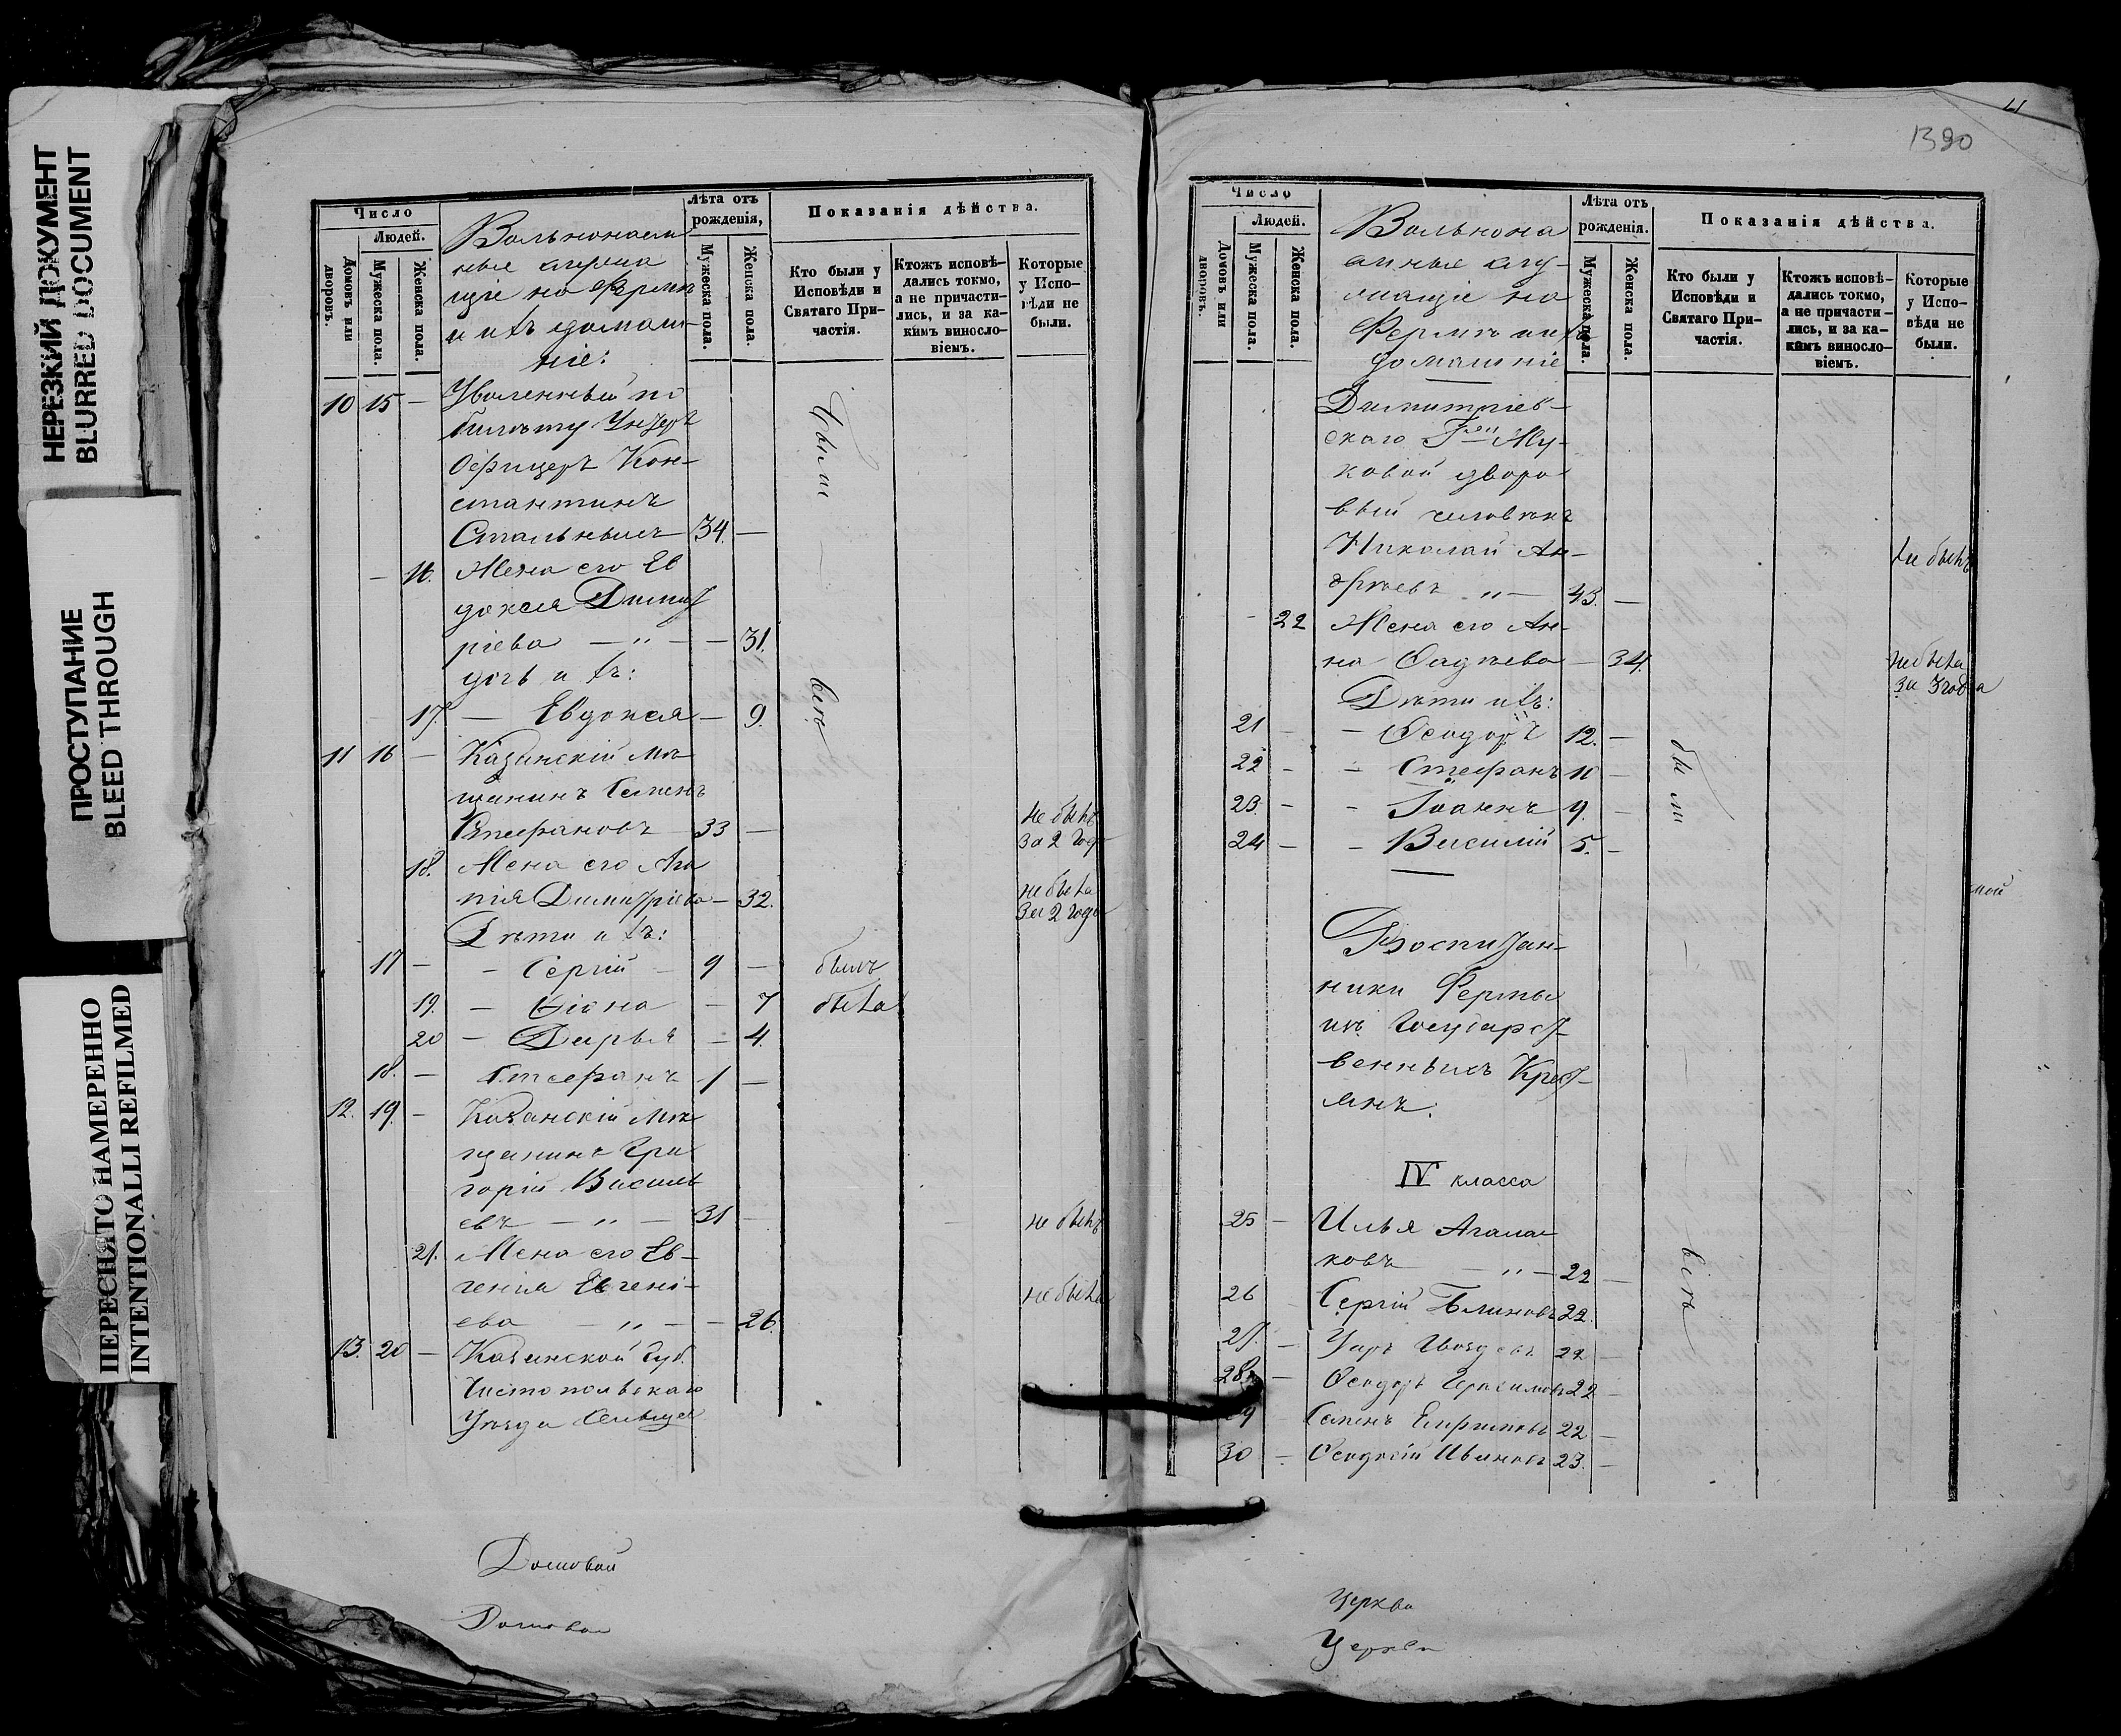 НЕРЕЗКИЙ ДОКУМЕНТ
BLURRED DOCUMENT
ПРОСТУПАНИЕ
BLEED THROUGH
ПЕРЕСНЯТО НАМЕРЕННО
INTENTIONALLI REFILMED
Число
Людей.
Домовъ или дворовъ.
Мужеска пола.
Женска пола.
Вольнонаем
ные служа
щіе на Фермѣ
и ихъ домаш-
ніе:
Лѣта отъ рожденія,
Мужеска пола.
Женска пола.
Показанія дѣйства.
Кто были у Исповѣди и Святаго При- частія.
Ктожъ исповѣ- дались токмо, а не причасти- лись, и за ка- кимъ виносло- віемъ.
Которые у Испо- вѣди не были.
10 15 — Уволенный по
билету Унтеръ
Офицеръ Кон-
стантинъ
Стальныхъ 34. —
были
— 16. Жена его Ев
докія Димит
ріева — „ — — 31.
дочь ихъ:
17. — Евдокія — 9.
всѣ
11 16 — Казанскій мѣ
щанинъ Семенъ
Стефановъ 33 — не былъ
за 2 год
18. Жена его Ага
пія Димитріева — 32. не была
за 2 года
Дѣти ихъ:
17 — — Сергій — 9 — былъ
19. — — 7 была
20 — Дарья — 4.
18. — Стефанъ 1 —
12. 19. — Казанскій мѣ
щанинъ Гри
горій Василь
евъ — „ — 31 — не былъ
21. Жена его Ев-
генія Евгені-
ева — „ — — 26. не была
13. 20 — Казанской Губ.
Чистопольскаго
Уѣзда
Домовой
Домовой
1390
Число
Людей.
Домовъ или дворовъ.
Мужеска пола.
Женска пола.
Вольнона
емные слу-
жащіе на
Фермѣ и ихъ
домашніе
Лѣта отъ рожденія.
Мужеска пола.
Женска пола.
Показанія дѣйства.
Кто были у Исповѣди и Святаго При- частія.
Ктожъ исповѣ- дались токмо, а не причасти- лись, и за ка- кимъ виносло- віемъ.
Которые у Испо- вѣди не были.
Димитріев-
скаго Му-
ковой дворо
вый человѣкъ
Николай Ан-
дреевъ „ — 43. — не былъ
- 22 Жена его Ан-
на — 34. не была
за 3 года
Дѣти ихъ:
21 — — Ѳеодоръ 12. —
22 — — Стефанъ 10 —
23. — — Іоаннъ 9. —
24 — — Василій 5. —
были
Воспитан-
ники Фермы
изъ Государст-
венныхъ Крест-
янъ.
IV класса
25 — Илья Агала
ковъ — „ — 22 —
26 Сергій Блиновъ 22.
27 — Уаръ Гвоздевъ 22 —
28. — Ѳеодоръ Герасимовъ 22 —
29 Семенъ Ефимовъ 22 —
30 — Иванов 23. —
всѣ
Церкви
Церкви